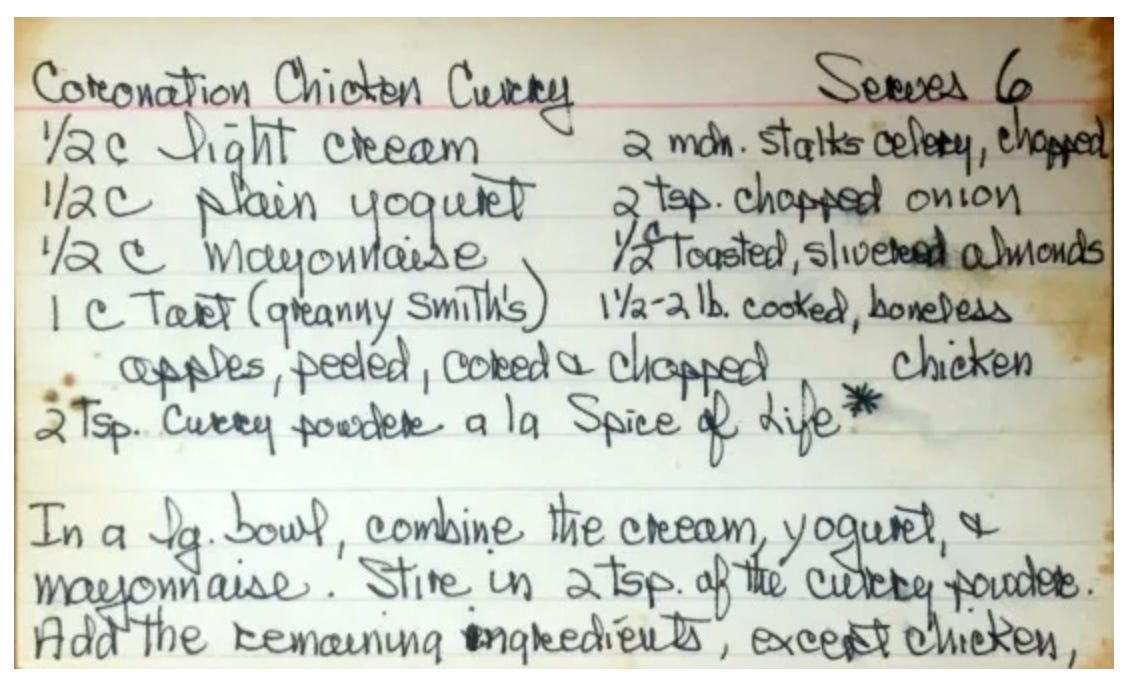 Coronation Chicken Curry Serves 6
1/2 c light cream 2 mdn. stalks celery, chopped
1/2 c plain yogurt 2 tsp. chopped onion
1/2 c mayonnaise 1/2 c toasted, slivered almonds
1 c Tart (granny Smith's) 1 1/2-2 lb. cooked, boneless
apples, peeled, cored & chopped chicken
2 Tsp. Curry powder a la Spice of Life*
In a lg. bowl, combine the cream, yogurt, &
mayonnaise. Stir in 2 tsp. of the curry powder.
Add the remaining ingredients, except chicken,